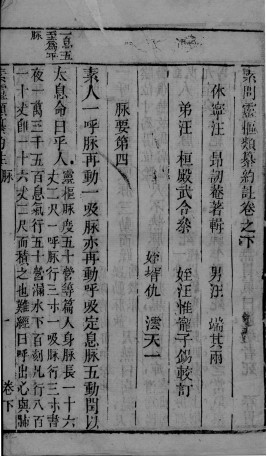 素問靈樞類纂約註卷之下
休寧汪 昂訒菴著輯 男汪 端其兩
弟汪 桓殿武合參 姪汪惟寵子錫較訂
姪壻仇 澐天一
脉要第四
素人一呼脉再動一吸脉亦再動呼吸定息脉五動閏以
太息命曰平人 靈樞脉度五十營等篇人身脉長一十六
丈二尺一呼脉行三寸一吸脉行三寸晝
夜一萬三千五百息氣行五十營漏水下百刻凡行八百
一十丈卽一十六丈二尺而積之也難經曰呼出心與肺
一息五
至爲平
脉
卷下
一